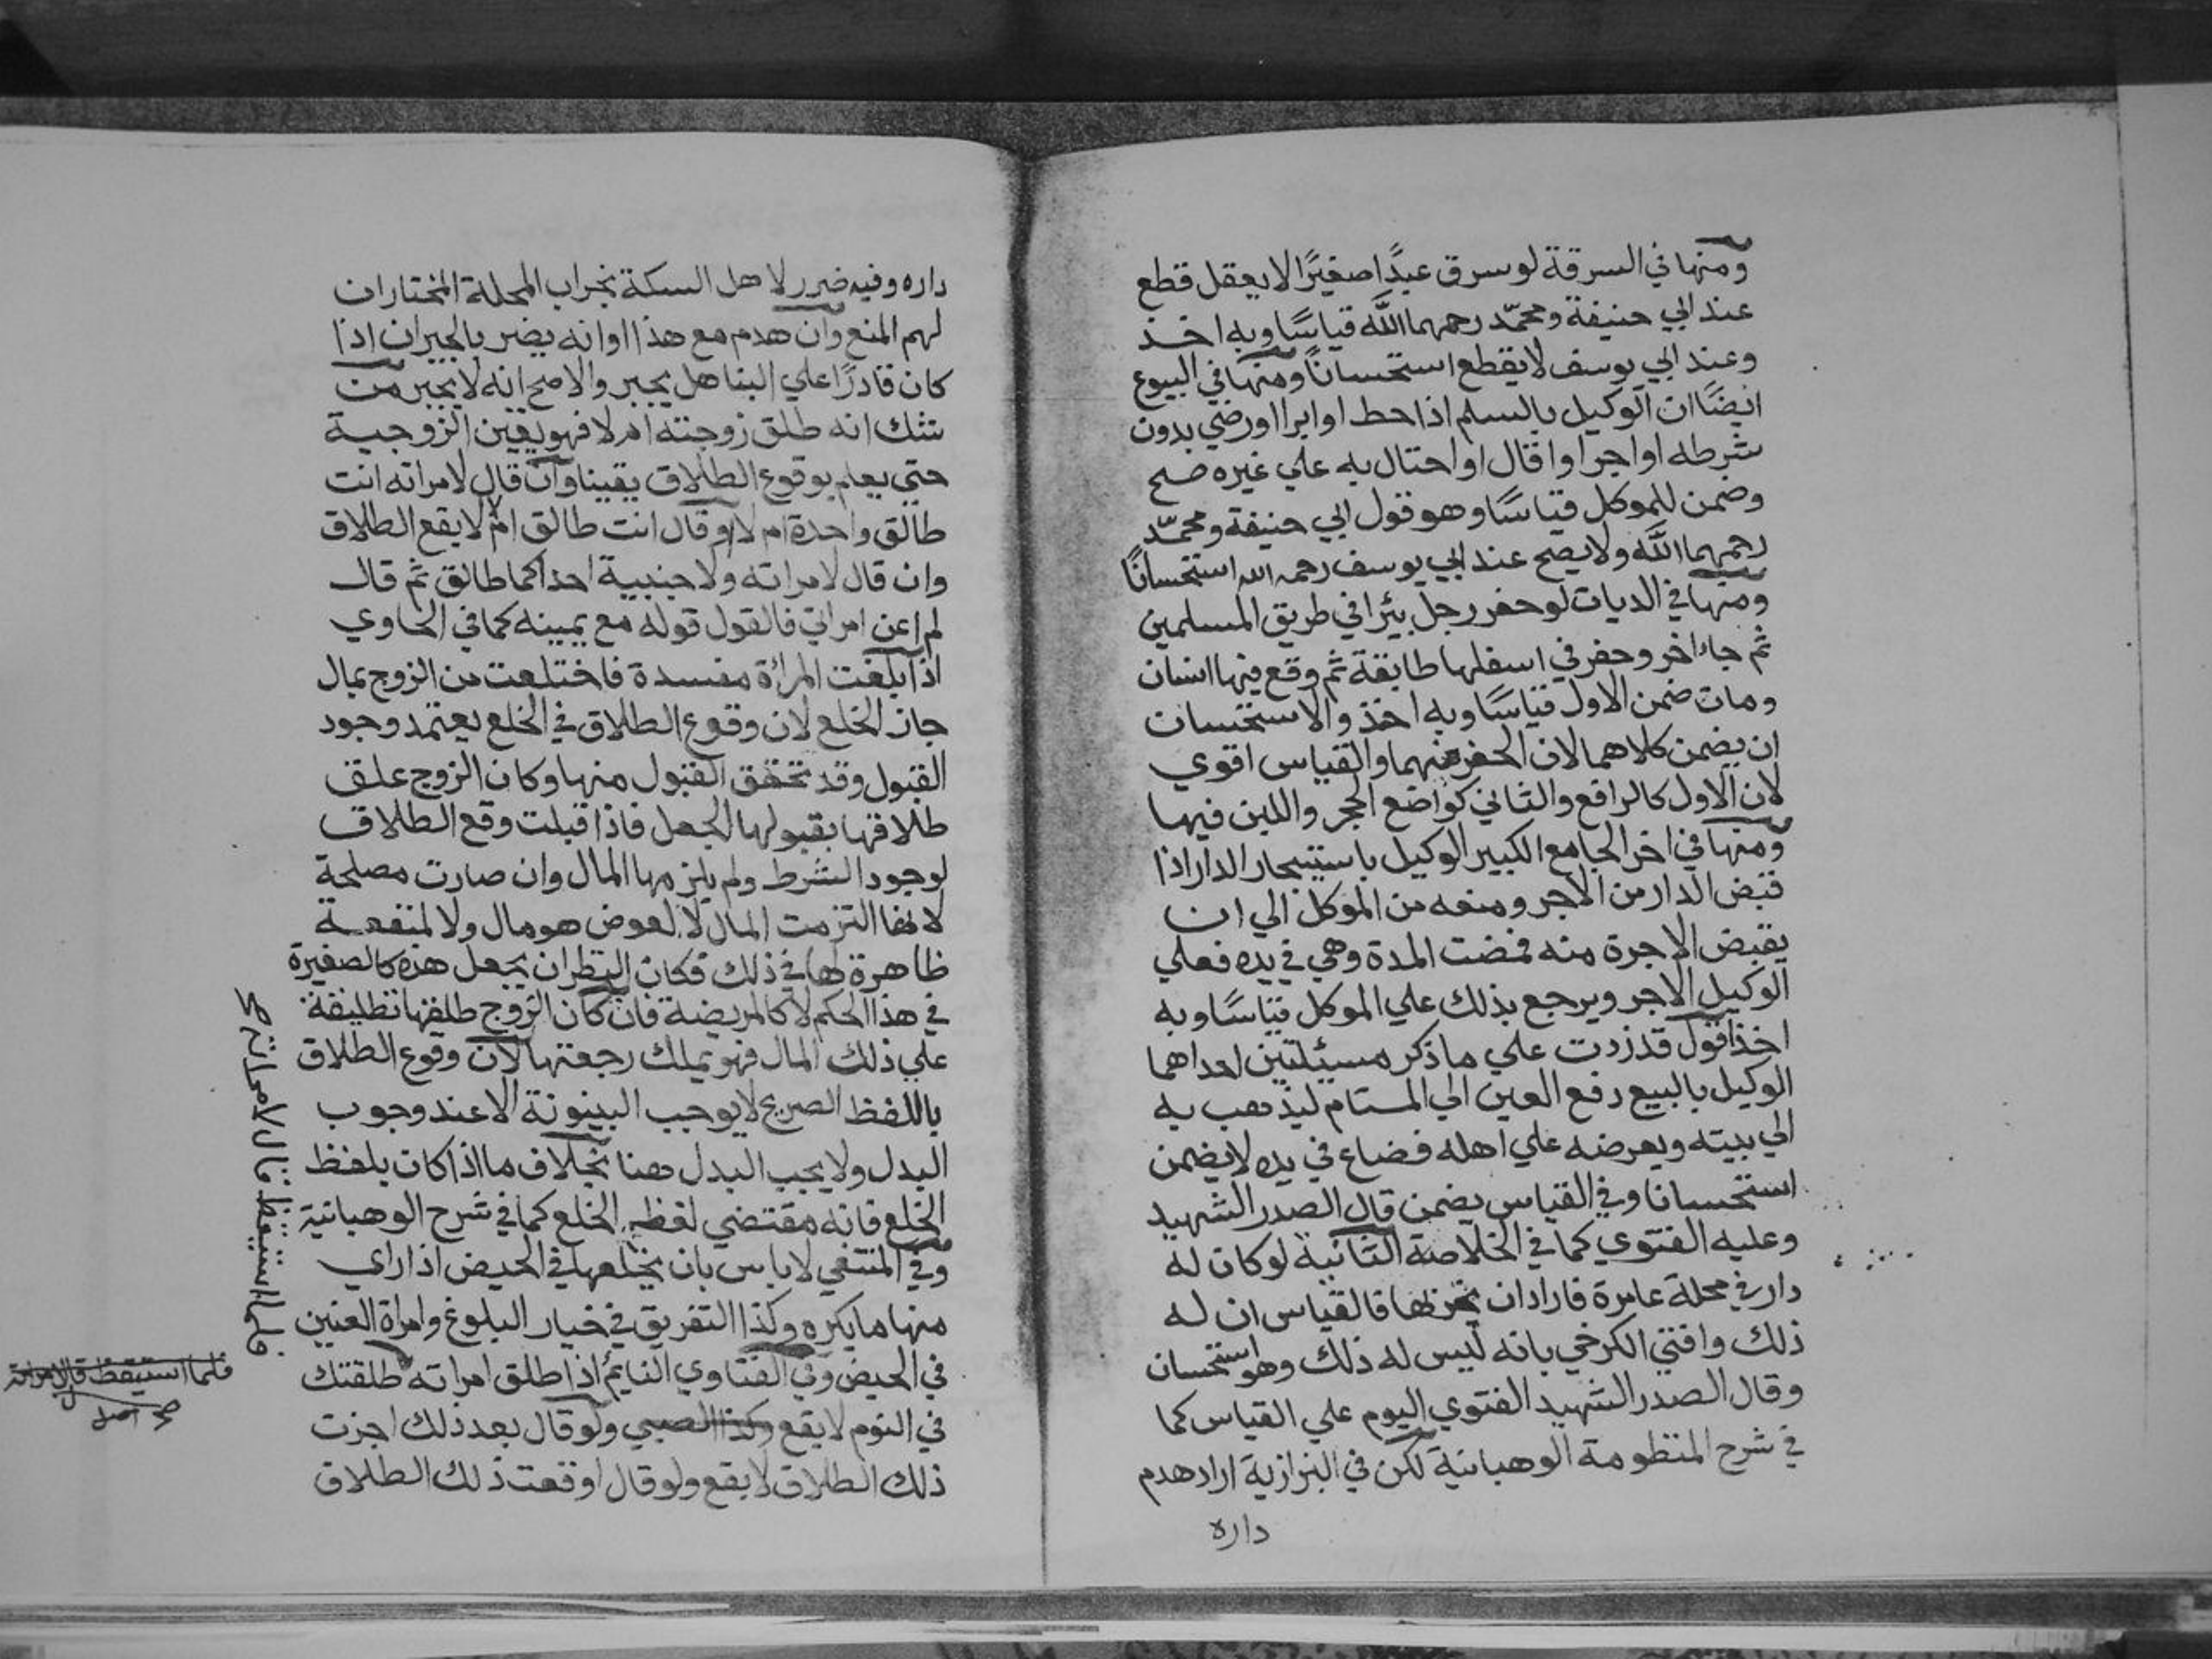 ومنها في السرقة لو سرق عبدًا صغيرًا لا يعقل قطع
عند ابي حنيفة ومحمّد رحمهما اللّه قياسًا وبه اخذ
وعند ابي يوسف لا يقطع استحسانًا ومنها في البيوع
ايضًا ان الوكيل بالسلم اذا حط او ابرا او رضي بدون
شرطه او اجر او اقال او احتال به علي غيره صح
وضمن للموكل قياسًا وهو قول ابي حنيفة ومحمّد
رحمهما اللّه ولا يصح عند ابي يوسف رحمه الله استحسانًا
ومنها في الديات لو حفر رجل بيرا في طريق المسلمين
ثم جاء اخر وحفر في اسفلها طايفة ثم وقع فيها انسان
ومات ضمن الاول قياسًا وبه اخذ والاستحسان
ان يضمن كلاهما لان الحفر منهما والقياس اقوي
لان الاول كالرافع والثاني كواضع الحجر واللبن فيها
ومنها في اخر الجامع الكبير الوكيل باستيجار الدار اذا
قبض الدار من الاجر ومنعه من الموكل الي ان
يقبض الاجرة منه فمضت المدة وهي في يده فعلي
الوكيل الاجر ويرجع بذلك علي الموكل قياسًا وبه
اخذ اقول قد زدت علي ما ذكر مسيئلتين احداهما
الوكيل بالبيع دفع العين الي المستام ليذهب به
الي بيته ويعرضه علي اهله فضاع في يده لا يضمن
استحسانا وفي القياس يضمن قال الصدر الشهيد
وعليه الفتوي كما في الخلاصة الثانية لو كان له
دار في محلة عامرة فاراد ان يخربها فالقياس ان له
ذلك وافتي الكرخي بانه ليس له ذلك وهو استحسان
وقال الصدر الشهيد الفتوي اليوم علي القياس كما
في شرح المنظومة الوهبانية لكن في البزازية اراد هدم
داره
داره وفيه ضرر لاهل السكة بخراب المحلة المختار ان
لهم المنع وان هدم مع هذا او انه يضر بالجيران اذا
كان قادرًا علي البنا هل يجبر والاصح انه لا يجبر من
شك انه طلق زوجته ام لا فهو يقين الزوجية
حتي يعلم بوقوع الطلاق يقينا وان قال لامراته انت
طالق واحدة ام لا او قال انت طالق ام لا لا يقع الطلاق
وان قال لامراته ولاجنبية احداكما طالق ثم قال
لم اعن امراتي فالقول قوله مع يمينه كما في الحاوي
اذا بلغت المراة مفسدة فاختلعت من الزوج بمال
جاز الخلع لان وقوع الطلاق في الخلع يعتمد وجود
القبول وقد تحقق القبول منها وكان الزوج علق
طلاقها بقبولها الجعل فاذا قبلت وقع الطلاق
لوجود الشرط ولم يلزمها المال وان صارت مصلحة
لانها التزمت المال لا لعوض هو مال ولا لمنفعة
ظاهرة لها في ذلك فكان النظر ان يجعل هذه كالصغيرة
في هذا الحكم لا كالمريضة فان كان الزوج طلقها تطليقة
علي ذلك المال فهو يملك رجعتها لان وقوع الطلاق
باللفظ الصريح لا يوجب البينونة الا عند وجوب
البدل ولا يجب البدل هنا بخلاف ما اذا كان بلفظ
الخلع فانه مقتضي لفظه الخلع كما في شرح الوهبانية
وفي المنتقي لا باس بان يخلعها في الحيض اذا راي
منها ما يكره وكذا التفريق في خيار البلوغ وامراة العنين
في الحيض وفي الفتاوي النايم اذا طلق امراته طلقتك
في النوم لا يقع وكذا الصبي ولو قال بعد ذلك اجزت
ذلك الطلاق لا يقع ولو قال اوقعت ذلك الطلاق
فلما استيقظ قال لامراته صح
فلما استيقظ قال لامراته
صح اصل